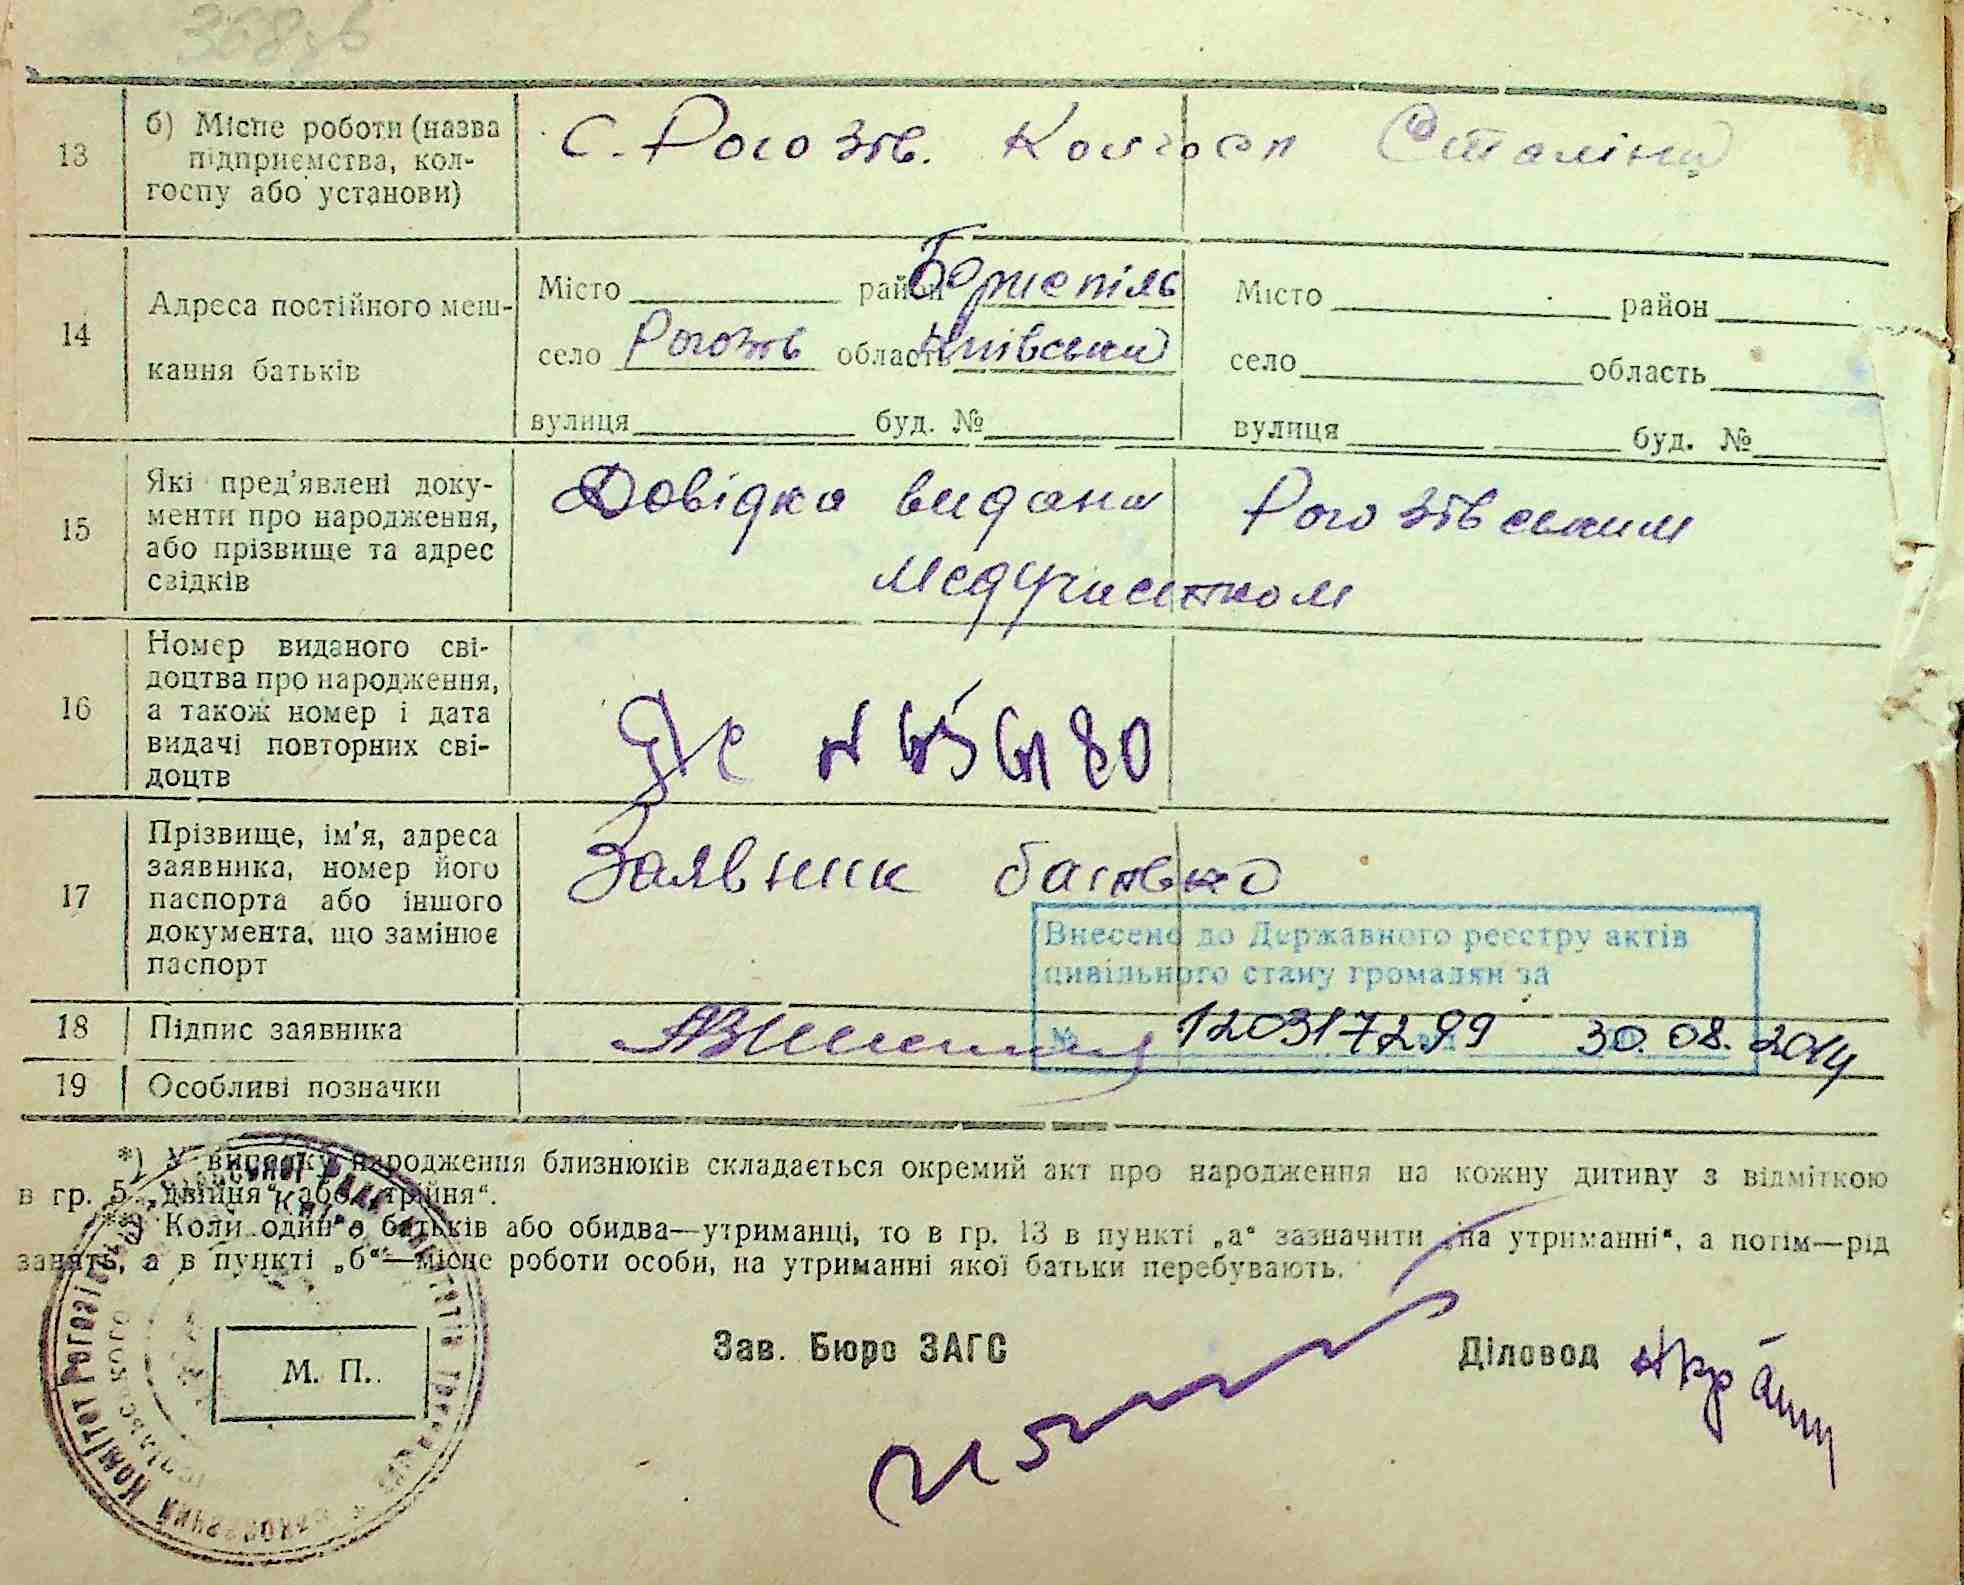 13 б) Місце роботи (назва
підприємства, кол-
госпу або установи)
С. Рогозів. Колгосп Сталіна
14 Адреса постійного меш-
кання батьків
Місто район Бориспіль
село Рогозів область Київська
вулиця буд. №
Місто район
село область
вулиця буд. №
15 Які пред'явлені доку-
менти про народження,
або прізвище та адрес
свідків
Довідка видана Рогозівським
медучастком
16 Номер виданого сві-
доцтва про народження,
а також номер і дата
видачі повторних сві-
доцтв
17 Прізвище, ім'я, адреса
заявника, номер його
паспорта або іншого
документа, що замінює
паспорт
Заявник батько
Внесено до Державного реєстру актів
цивільного стану громадян за
№ 120317299 30.08.2014
18 Підпис заявника
19 Особливі позначки
*) У випадку народження близнюків складається окремий акт про народження на кожну дитину з відміткою
в гр. 5 „двійня“ або „трійня“.
**) Коли один з батьків або обидва—утриманці, то в гр. 13 в пункті „а“ зазначити „на утриманні“, а потім—рід
занять, а в пункті „б“—місце роботи особи, на утриманні якої батьки перебувають.
М. П.
Зав. Бюро ЗАГС
Діловод